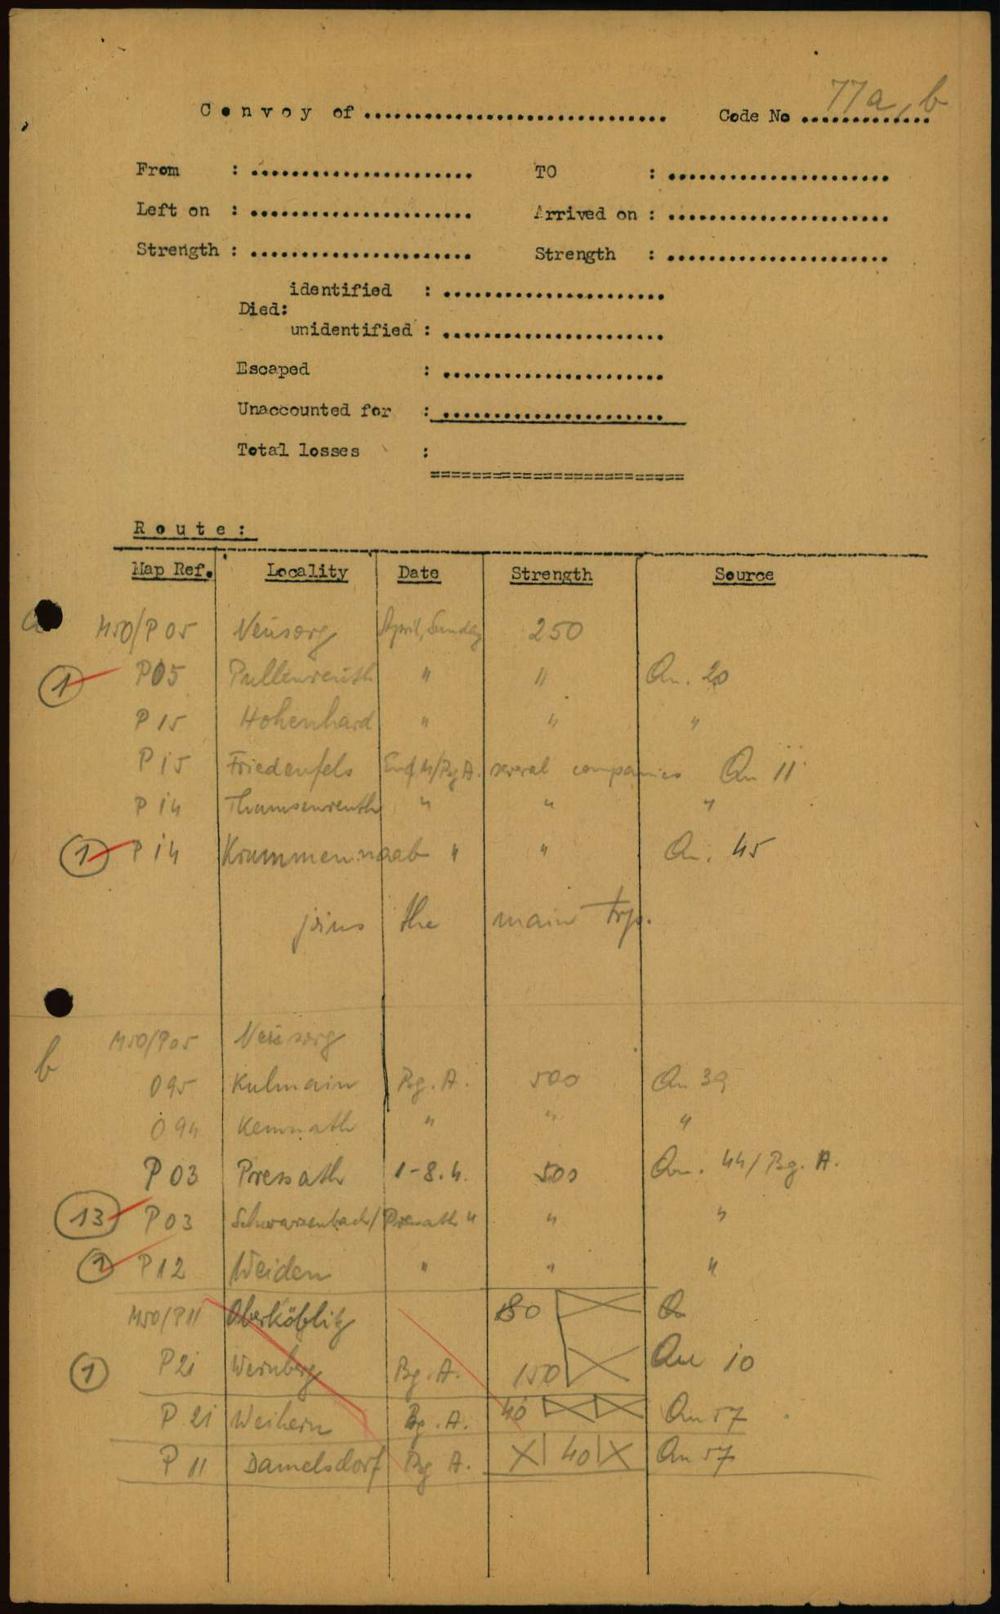 77a, b
Convoy of .............................. Code No .............
From : ...................... TO : ......................
Left on : ...................... Arrived on : ......................
Strength : ...................... Strength : ......................
identified : ......................
Died:
unidentified : ......................
Escaped : ......................
Unaccounted for : ......................
Total losses :
=========================
Route:
Map Ref. Locality Date Strength Source
a M50/P05 Neusorg April, Sunday 250
1 P05 Pullenreuth " " Qu. 20
P15 Hohenhard " " "
P15 Friedenfels End 4/Bg A. several companies Qu 11
P14 Thumsenreuth " " "
1 P14 Krummennaab " " Qu. 45
joins the main trp.
b M50/P05 Neusorg
O95 Kulmain Bg. A. 500 Qu 39
O94 Kemnath " " "
P03 Pressath 1-8.4. 500 Qu. 44/Bg. A.
13 P03 Schwarzenbach/Pressath " " "
P12 Weiden " " "
M50/P11 Oberköblitz 80 Qu
1 P21 Wernberg Bg. A. 150 Qu 10
P21 Weihern Bg. A. 40 Qu 57
P11 Damelsdorf Bg A. 40 Qu 57